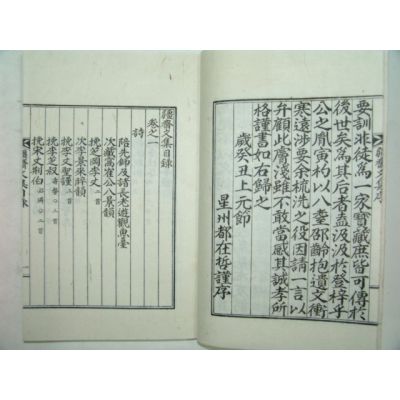 要訓非徒為一家寶藏庶皆可傳於
後世矣為其后者盍汲汲於登梓乎
公之胤寅杓以八耋邵齡抱遺文衡
寒遠涉要余梳洗之役因請一言以
弁顧此膚淺雖不敢當感其誠孝所
格謹書如右歸之
歲癸丑上元節
星州都在哲謹序
齋文集序
齋文集目錄
卷之一
詩
陪先師及諸長老遊觀魚臺
次藏窩崔公八景韻
挽芝岡李丈
次李景來晬韻
挽李丈聖謹
挽李芝叔
挽宋丈利伯
齋文集目錄